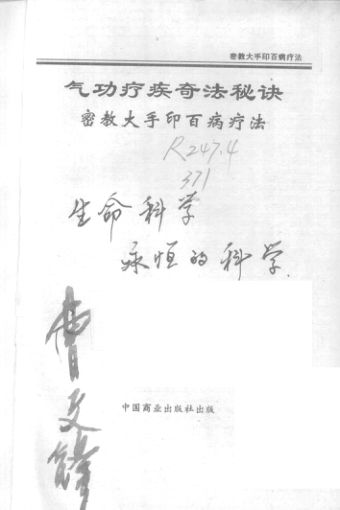 密教大手印百病疗法
气功疗疾奇法秘诀
密教大手印百病疗法
R247.4
371
生命科学
永恒的科学
中国商业出版社出版